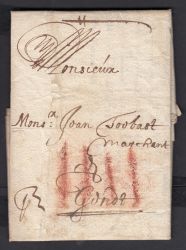 Monsieur
Mons:r Joan Toobast
Marchant
A
Gendt